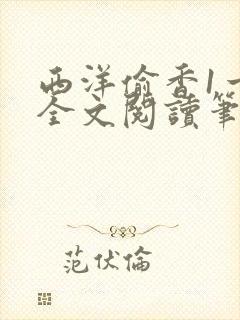 西洋偷香1一
全文閱讀筆
范伏倫